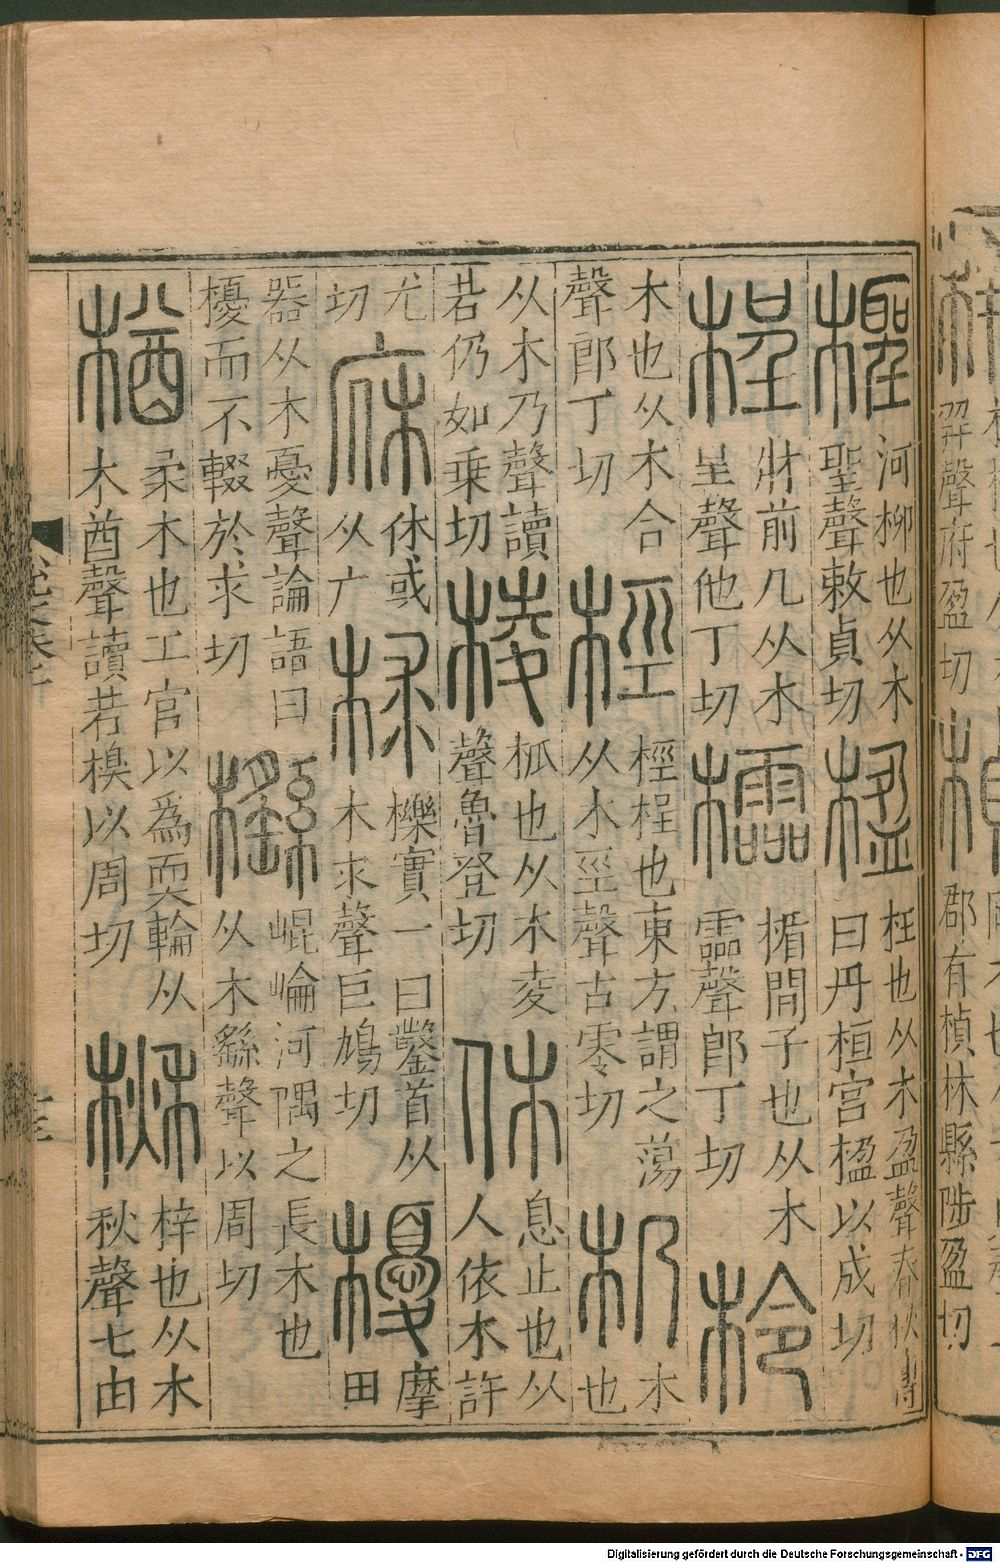 幷聲府盈切
郡有楨林縣陟盈切
檉
河柳也从木
聖聲敕貞切
楹
柱也从木盈聲春秋傳
曰丹桓宮楹以成切
桯
牀前几从木
呈聲他丁切
櫺
楯間子也从木
霝聲郎丁切
柃
木也从木合
聲郎丁切
桱
桱桯也東方謂之蕩
从木巠聲古零切
木
也
从木乃聲讀
若仍如乗切
棱
柧也从木夌
聲魯登切
休
息止也从
人依木許
尤
切
庥
休或
从广
梂
櫟實一曰鑿首从
木求聲巨鳩切
櫌
摩
田
器从木憂聲論語曰
櫌而不輟於求切
櫾
崐崘河隅之長木也
从木繇聲以周切
楢
柔木也工官以爲耎輪从
木酋聲讀若糗以周切
楸
梓也从木
秋聲七由
Digitalisierung gefördert durch die Deutsche Forschungsgemeinschaft - DFG